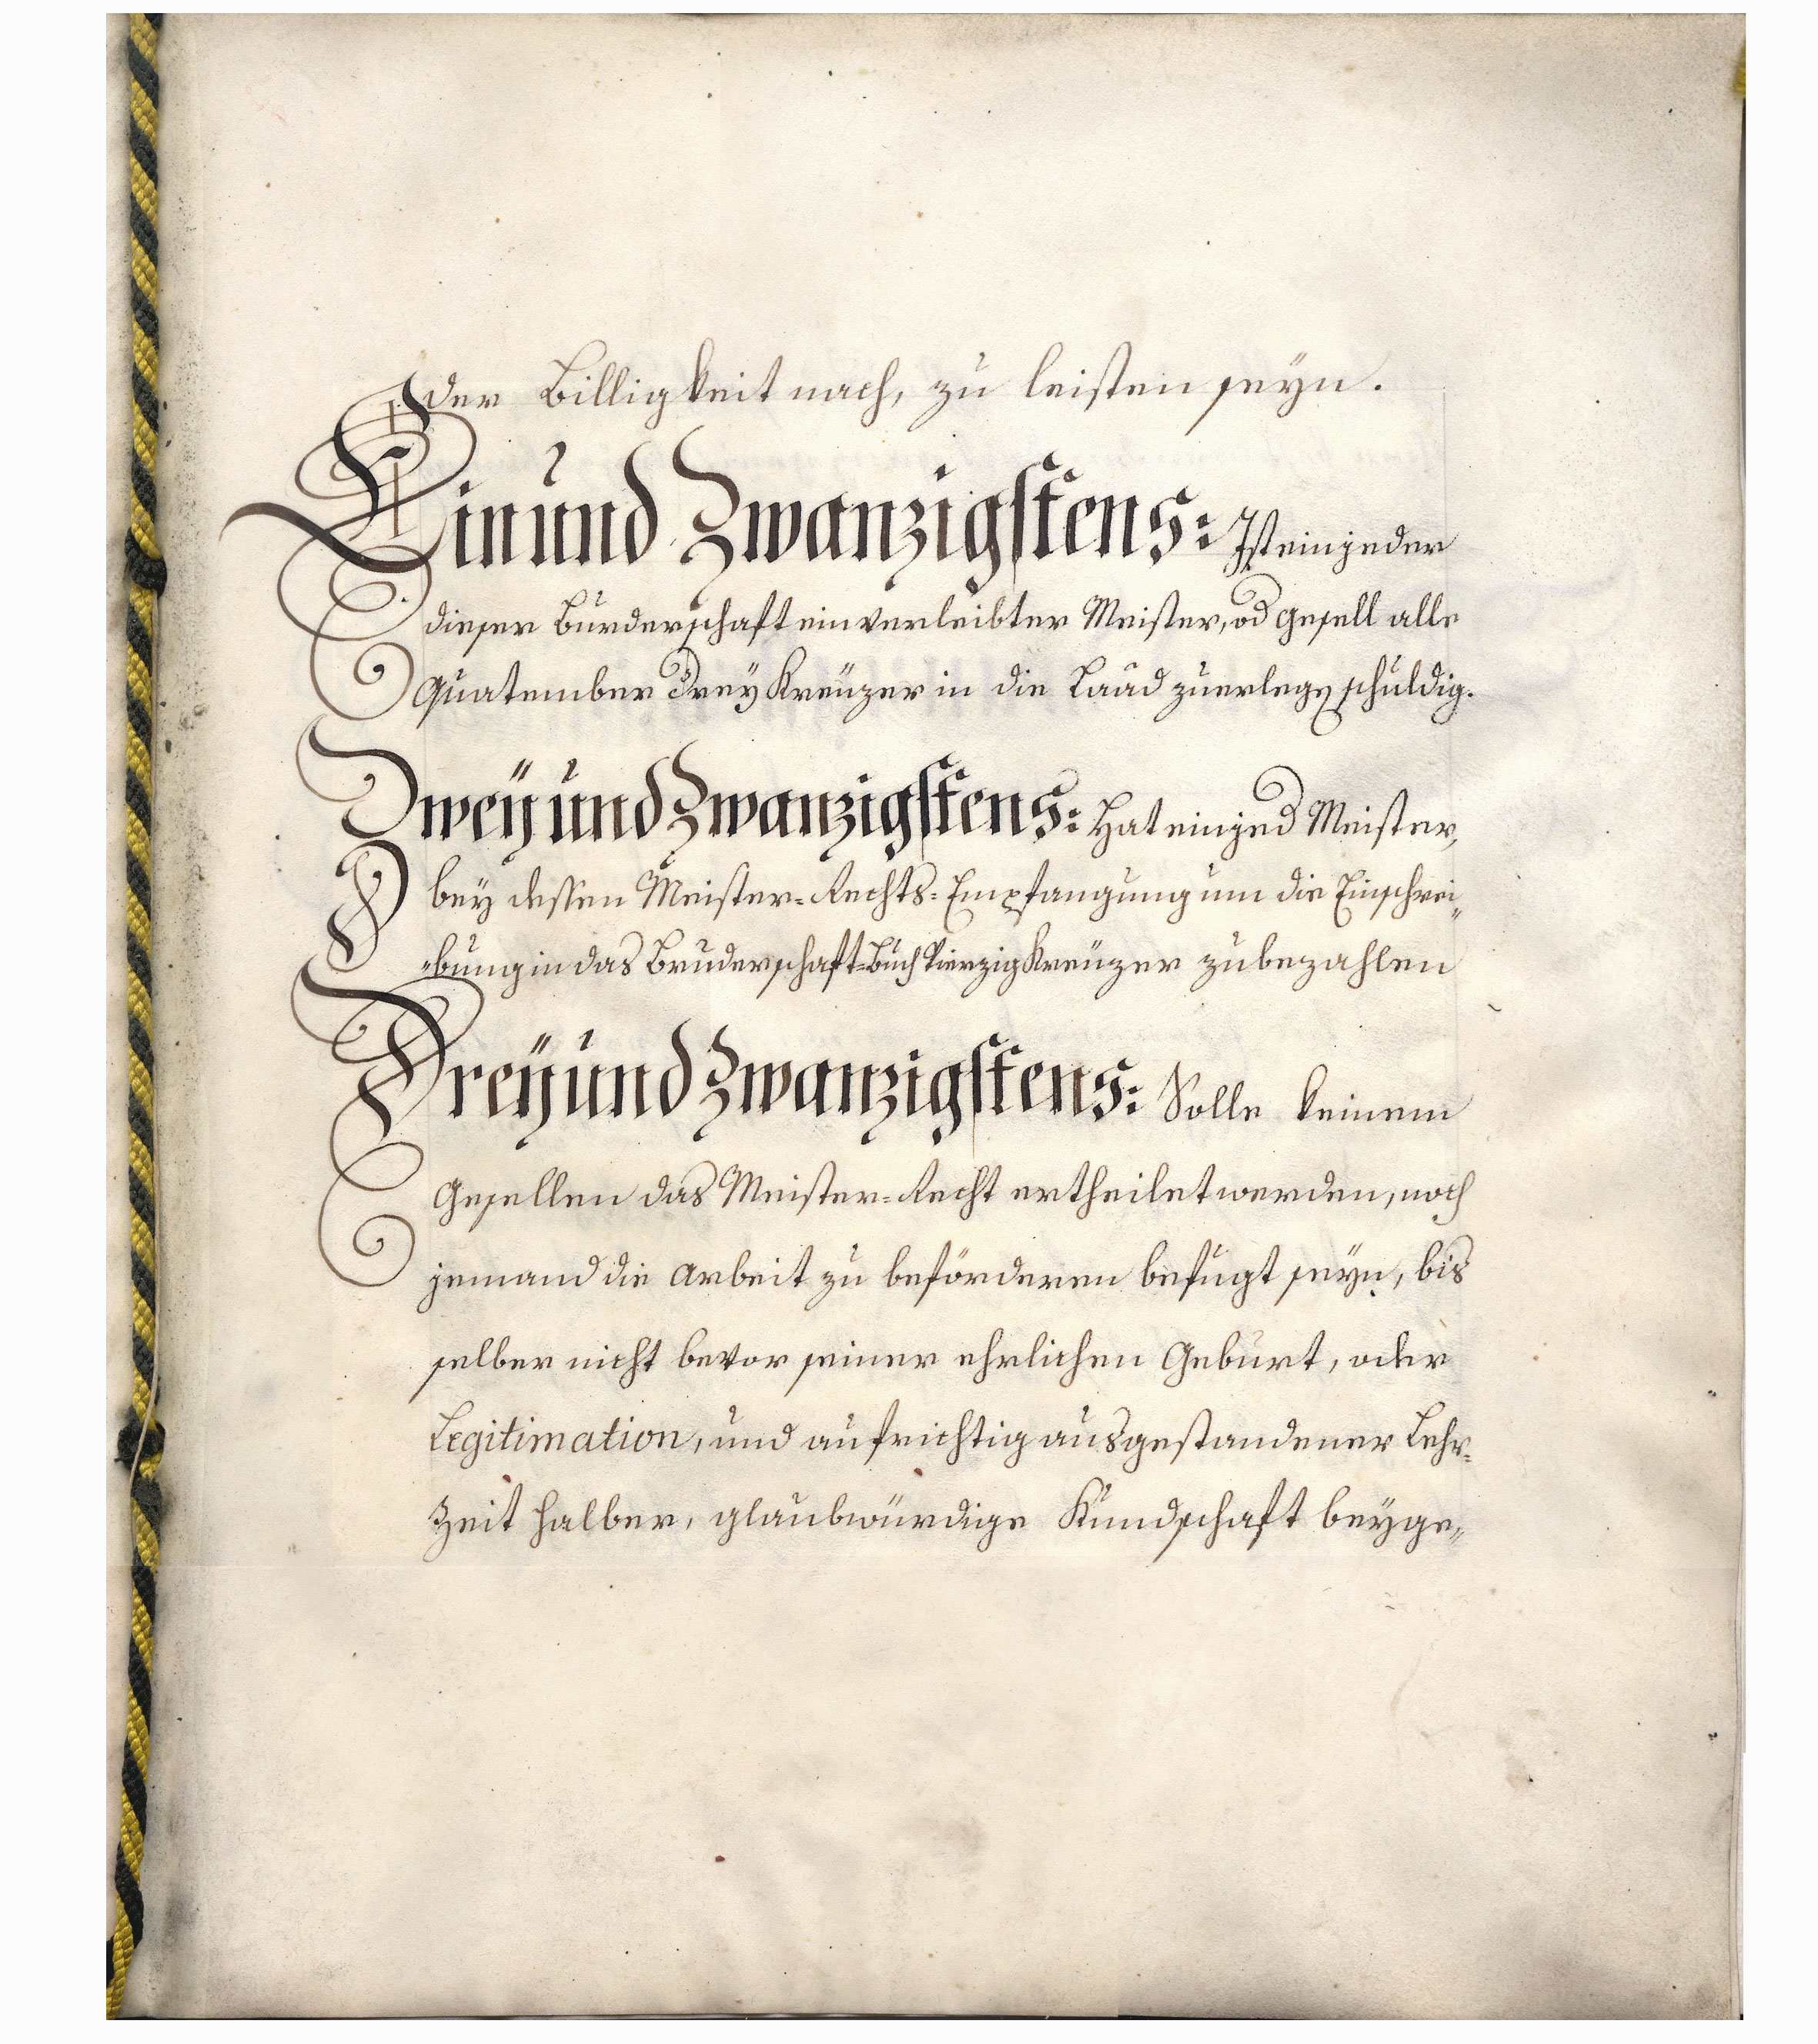 der Billigkeit nach, zu leisten seyn.
Ein und Zwanzigstens: Ist ein jeder
dieser Burderschaft einverleibter Meister, od Gesell alle
Quatember Drey Kreüzer in die Laad zuerlegen schuldig.
Zweÿ und Zwanzigstens: Hat ein jed Meister,
bey dessen Meister-Rechts-Empfangung um die Einschrei„
„bung in das Bruderschaft-Buch Vierzig Kreüzer zubezahlen
Dreÿ und Zwanzigstens: Solle keinem
Gesellen das Meister-Recht ertheilet werden, noch
jemand die Arbeit zu beförderen befugt seÿn, bis
selber nicht bevor seiner ehrlichen Geburt, oder
Legitimation, und aufrichtig ausgestandener Lehr-
Zeit halber, glaubwürdige Kundschaft beÿge„